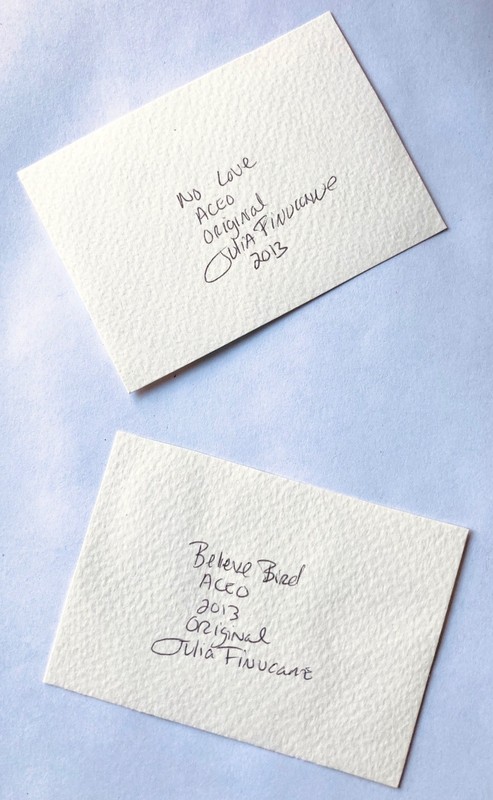 No Love
ACEO
ORIGINAL
Julia Finucane
2013
Believe Bird
ACEO
2013
ORIGINAL
Julia Finucane